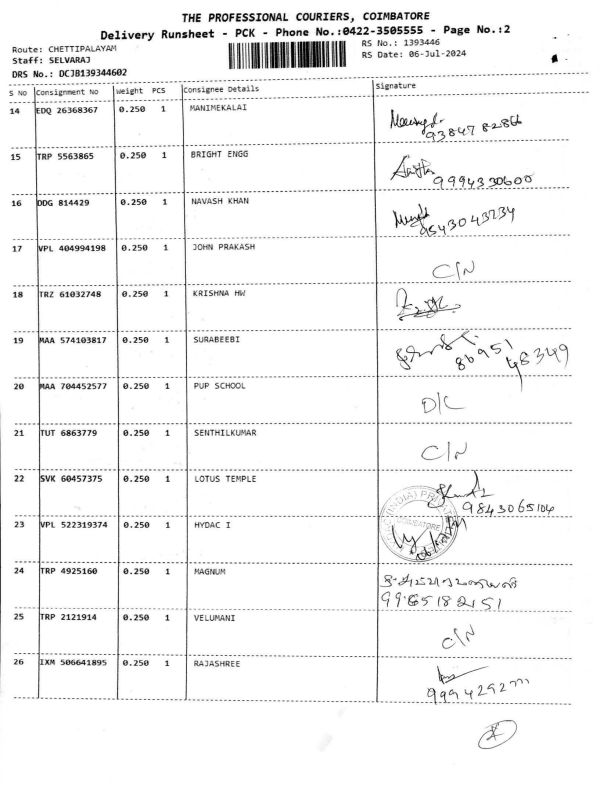 THE PROFESSIONAL COURIERS, COIMBATORE
Delivery Runsheet - PCK - Phone No.:0422-3505555 - Page No.:2
Route: CHETTIPALAYAM RS No.: 1393446
Staff: SELVARAJ RS Date: 06-Jul-2024
DRS No.: DCJB139344602
S No Consignment No Weight PCS Consignee Details Signature
14 EDQ 26368367 0.250 1 MANIMEKALAI
93847 82866
15 TRP 5563865 0.250 1 BRIGHT ENGG
9994330600
16 DDG 814429 0.250 1 NAVASH KHAN
9543043234
17 VPL 404994198 0.250 1 JOHN PRAKASH
C/N
18 TRZ 61032748 0.250 1 KRISHNA HW
19 MAA 574103817 0.250 1 SURABEEBI
80951
48349
20 MAA 704452577 0.250 1 PUP SCHOOL
D/L
21 TUT 6863779 0.250 1 SENTHILKUMAR
C/N
22 SVK 60457375 0.250 1 LOTUS TEMPLE
9843065104
23 VPL 522319374 0.250 1 HYDAC I
(INDIA) PRIVATE
COIMBATORE
24 TRP 4925160 0.250 1 MAGNUM
9965182151
25 TRP 2121914 0.250 1 VELUMANI
C/N
26 IXM 506641895 0.250 1 RAJASHREE
9994292777